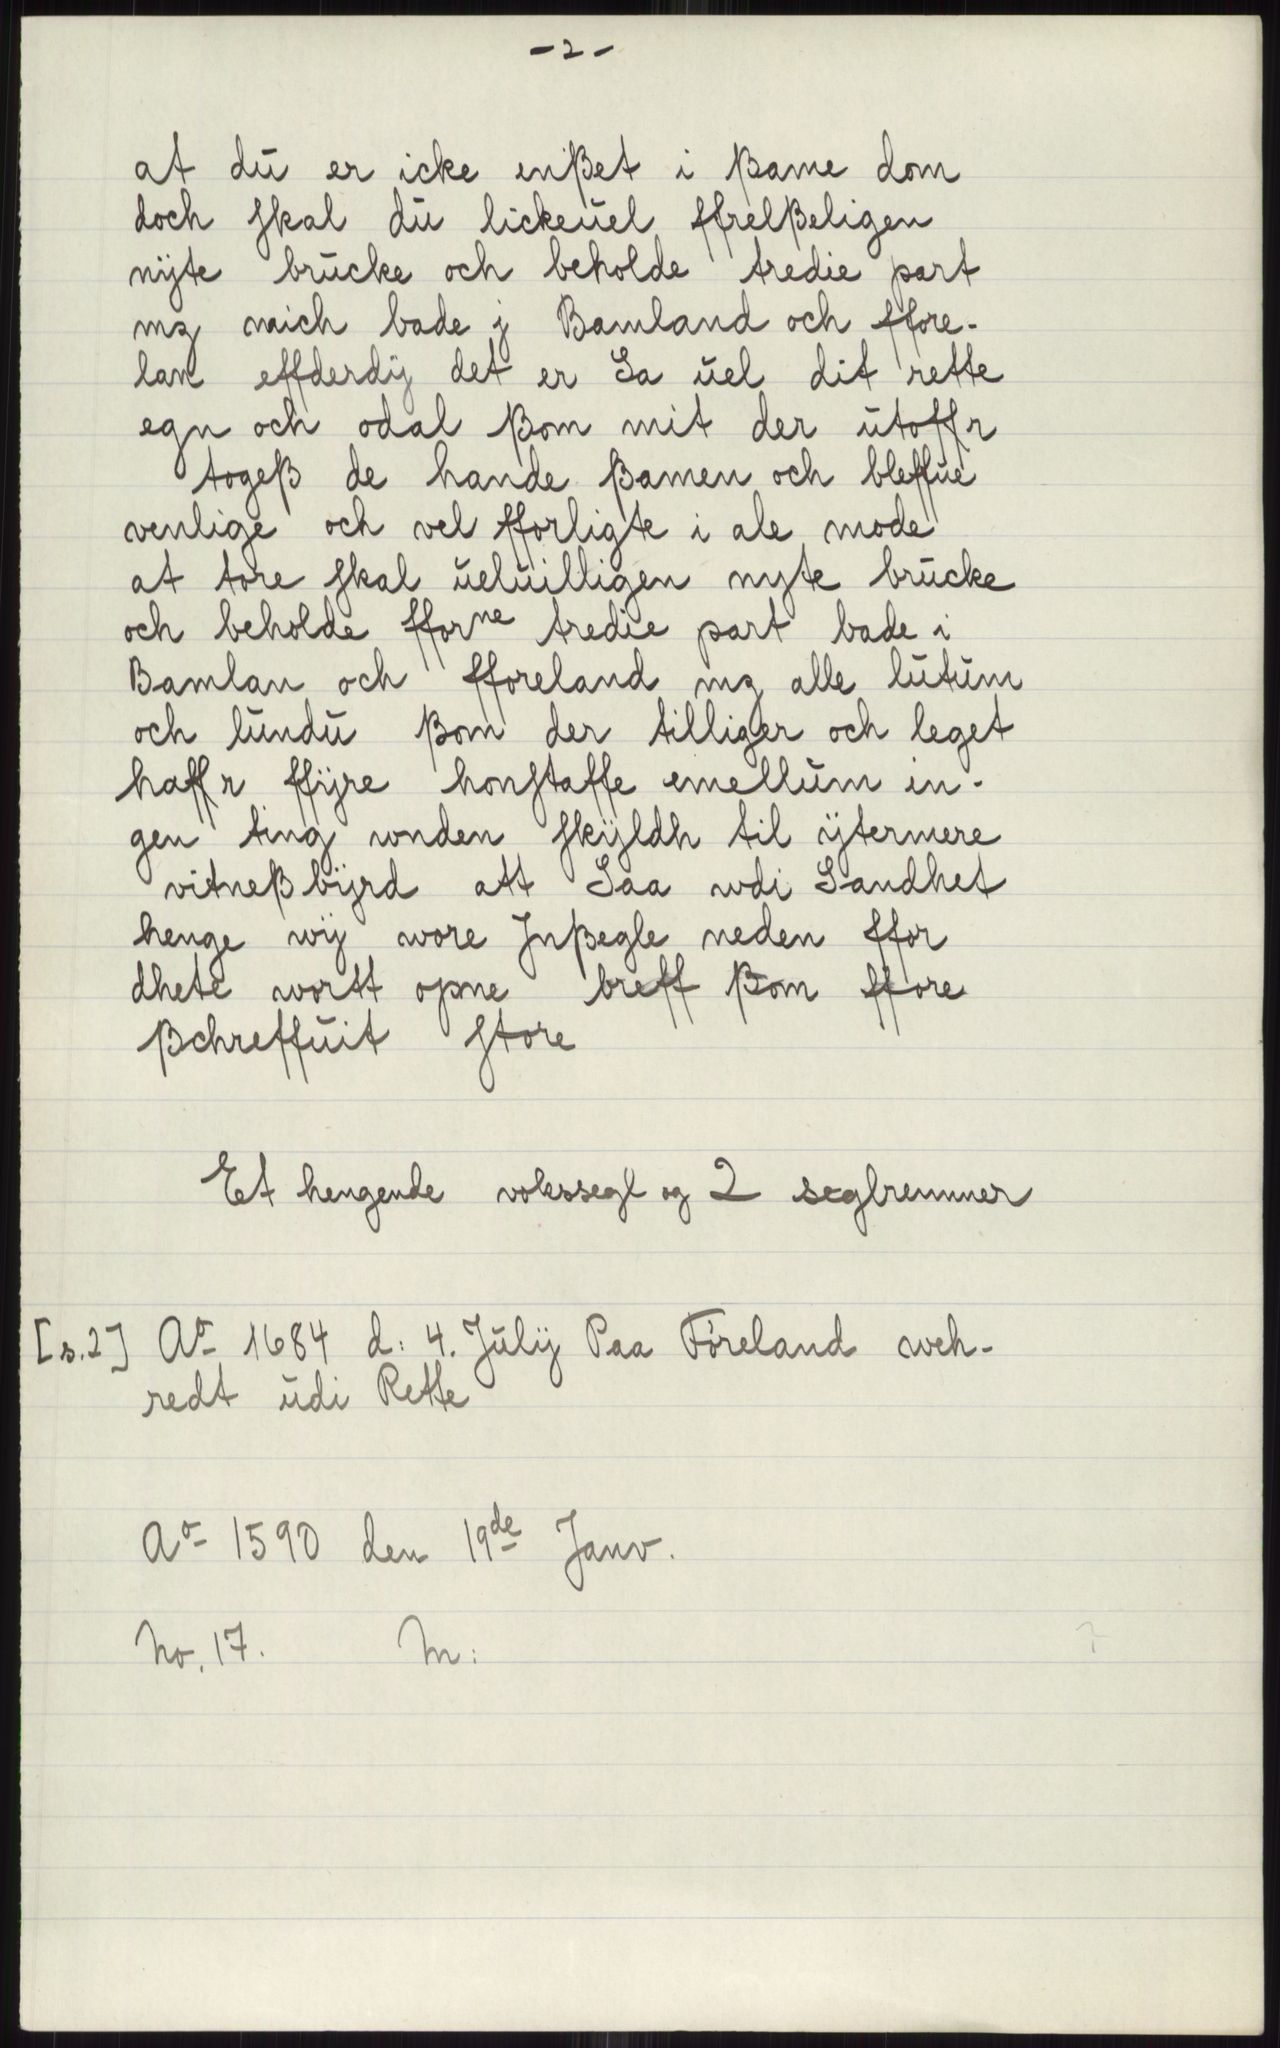 - 2 -
at dū er icke enßet i ßame dom
doch skal dū lickeūel ffrelßeligen
nÿte brūcke och beholde tredie part
mz mich bade j Bamland och ffore-
lan effderdÿ det er Sa ūel dit rette
egn och odal ßom mit der ūtoffr
togeß de hande ßamen och bleffūe
venlige och vel fforligte i ale mode
at tore skal ūelūilligen nyte brūcke
och beholde fforne tredie part bade i
Bamlan och fforeland mz alle lūtūm
och lūndū ßom der tilliger och leget
haffr ffÿre honstaffe emellūm in-
gen ting wnden skÿldh til ÿtermere
vitneßbÿrd att Saa wdi Sandhet
henge wÿ wore Jnßegle neden ffor
dhete wortt opne breff ßom ffore
ßchreffūit store
Et hengende vokssegl og 2 seglremmer
[s.2] Ao 1684 d: 4. Jūlÿ Paa Fóreland weh-
redt ūdi Rette
Ao 1590 den 19de Janv.
No. 17. M: